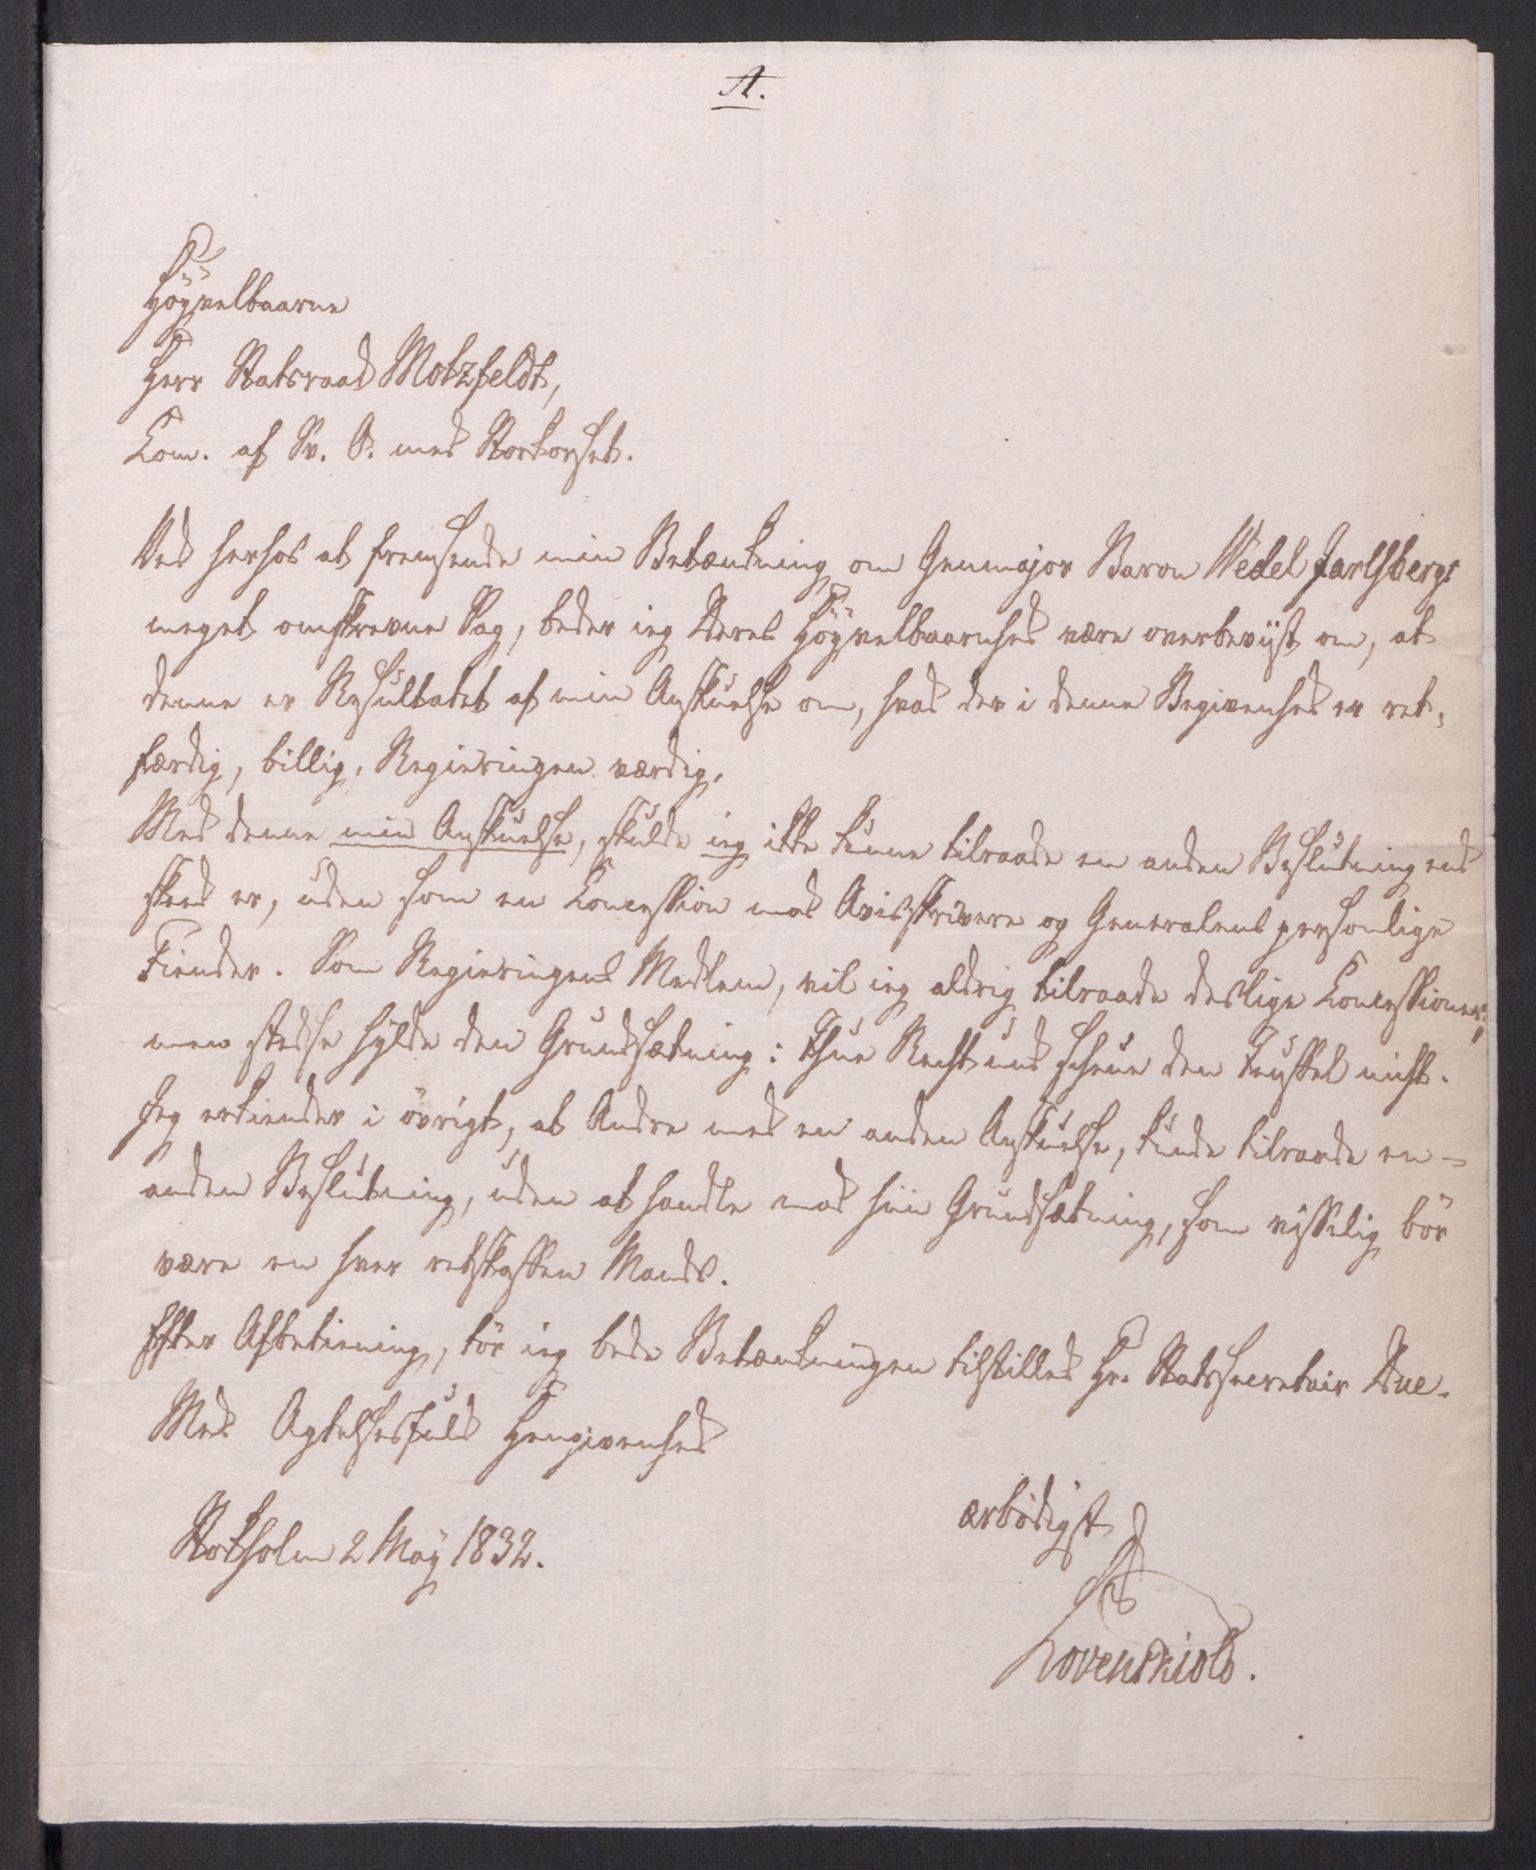 A.
Höyvelbaarne
Herr Statsraad Motzfeldt,
Com. af Sv. O. med Storkorset.
Ved herhos at fremsende min Betænkning om Genmajor Baron Wedel Jarlsbergs
meget omskrevne Sag, beder ieg Deres Höyvelbaarnhed være overbeviist om, at
denne er Resultatet af min Anskuelse om, hvad der i denne Begivenhed er ret,
færdig, billig, Regieringen værdig.
Med denne min Anskuelse, skulde ieg ikke kunne tilraade en anden Beslutning end
skeed er, uden som en Concession mod Avisskrivere og Generalens personlige
Fiender. Som Regieringens Medlem, vil ieg aldrig tilraade deslige Concessioner;
men stedse hylde den Grundsætning: Thue Recht und scheue den Teuffel nicht.
Jeg erkiender i övrigt, at Andre med en anden Anskuelse, kunde tilraade en
anden Beslutning, uden at handle mod hiin Grundsætning, som visselig bör
være en hver retskaffen Mands.
Efter Afbetiening, tör ieg bede Betænkningen tilstilles Hr. Statssecretair Due.
Med Agtelsesfuld Hengivenhed
ærbödigst
Stokholm 2 May 1832.
Lövenskiold.